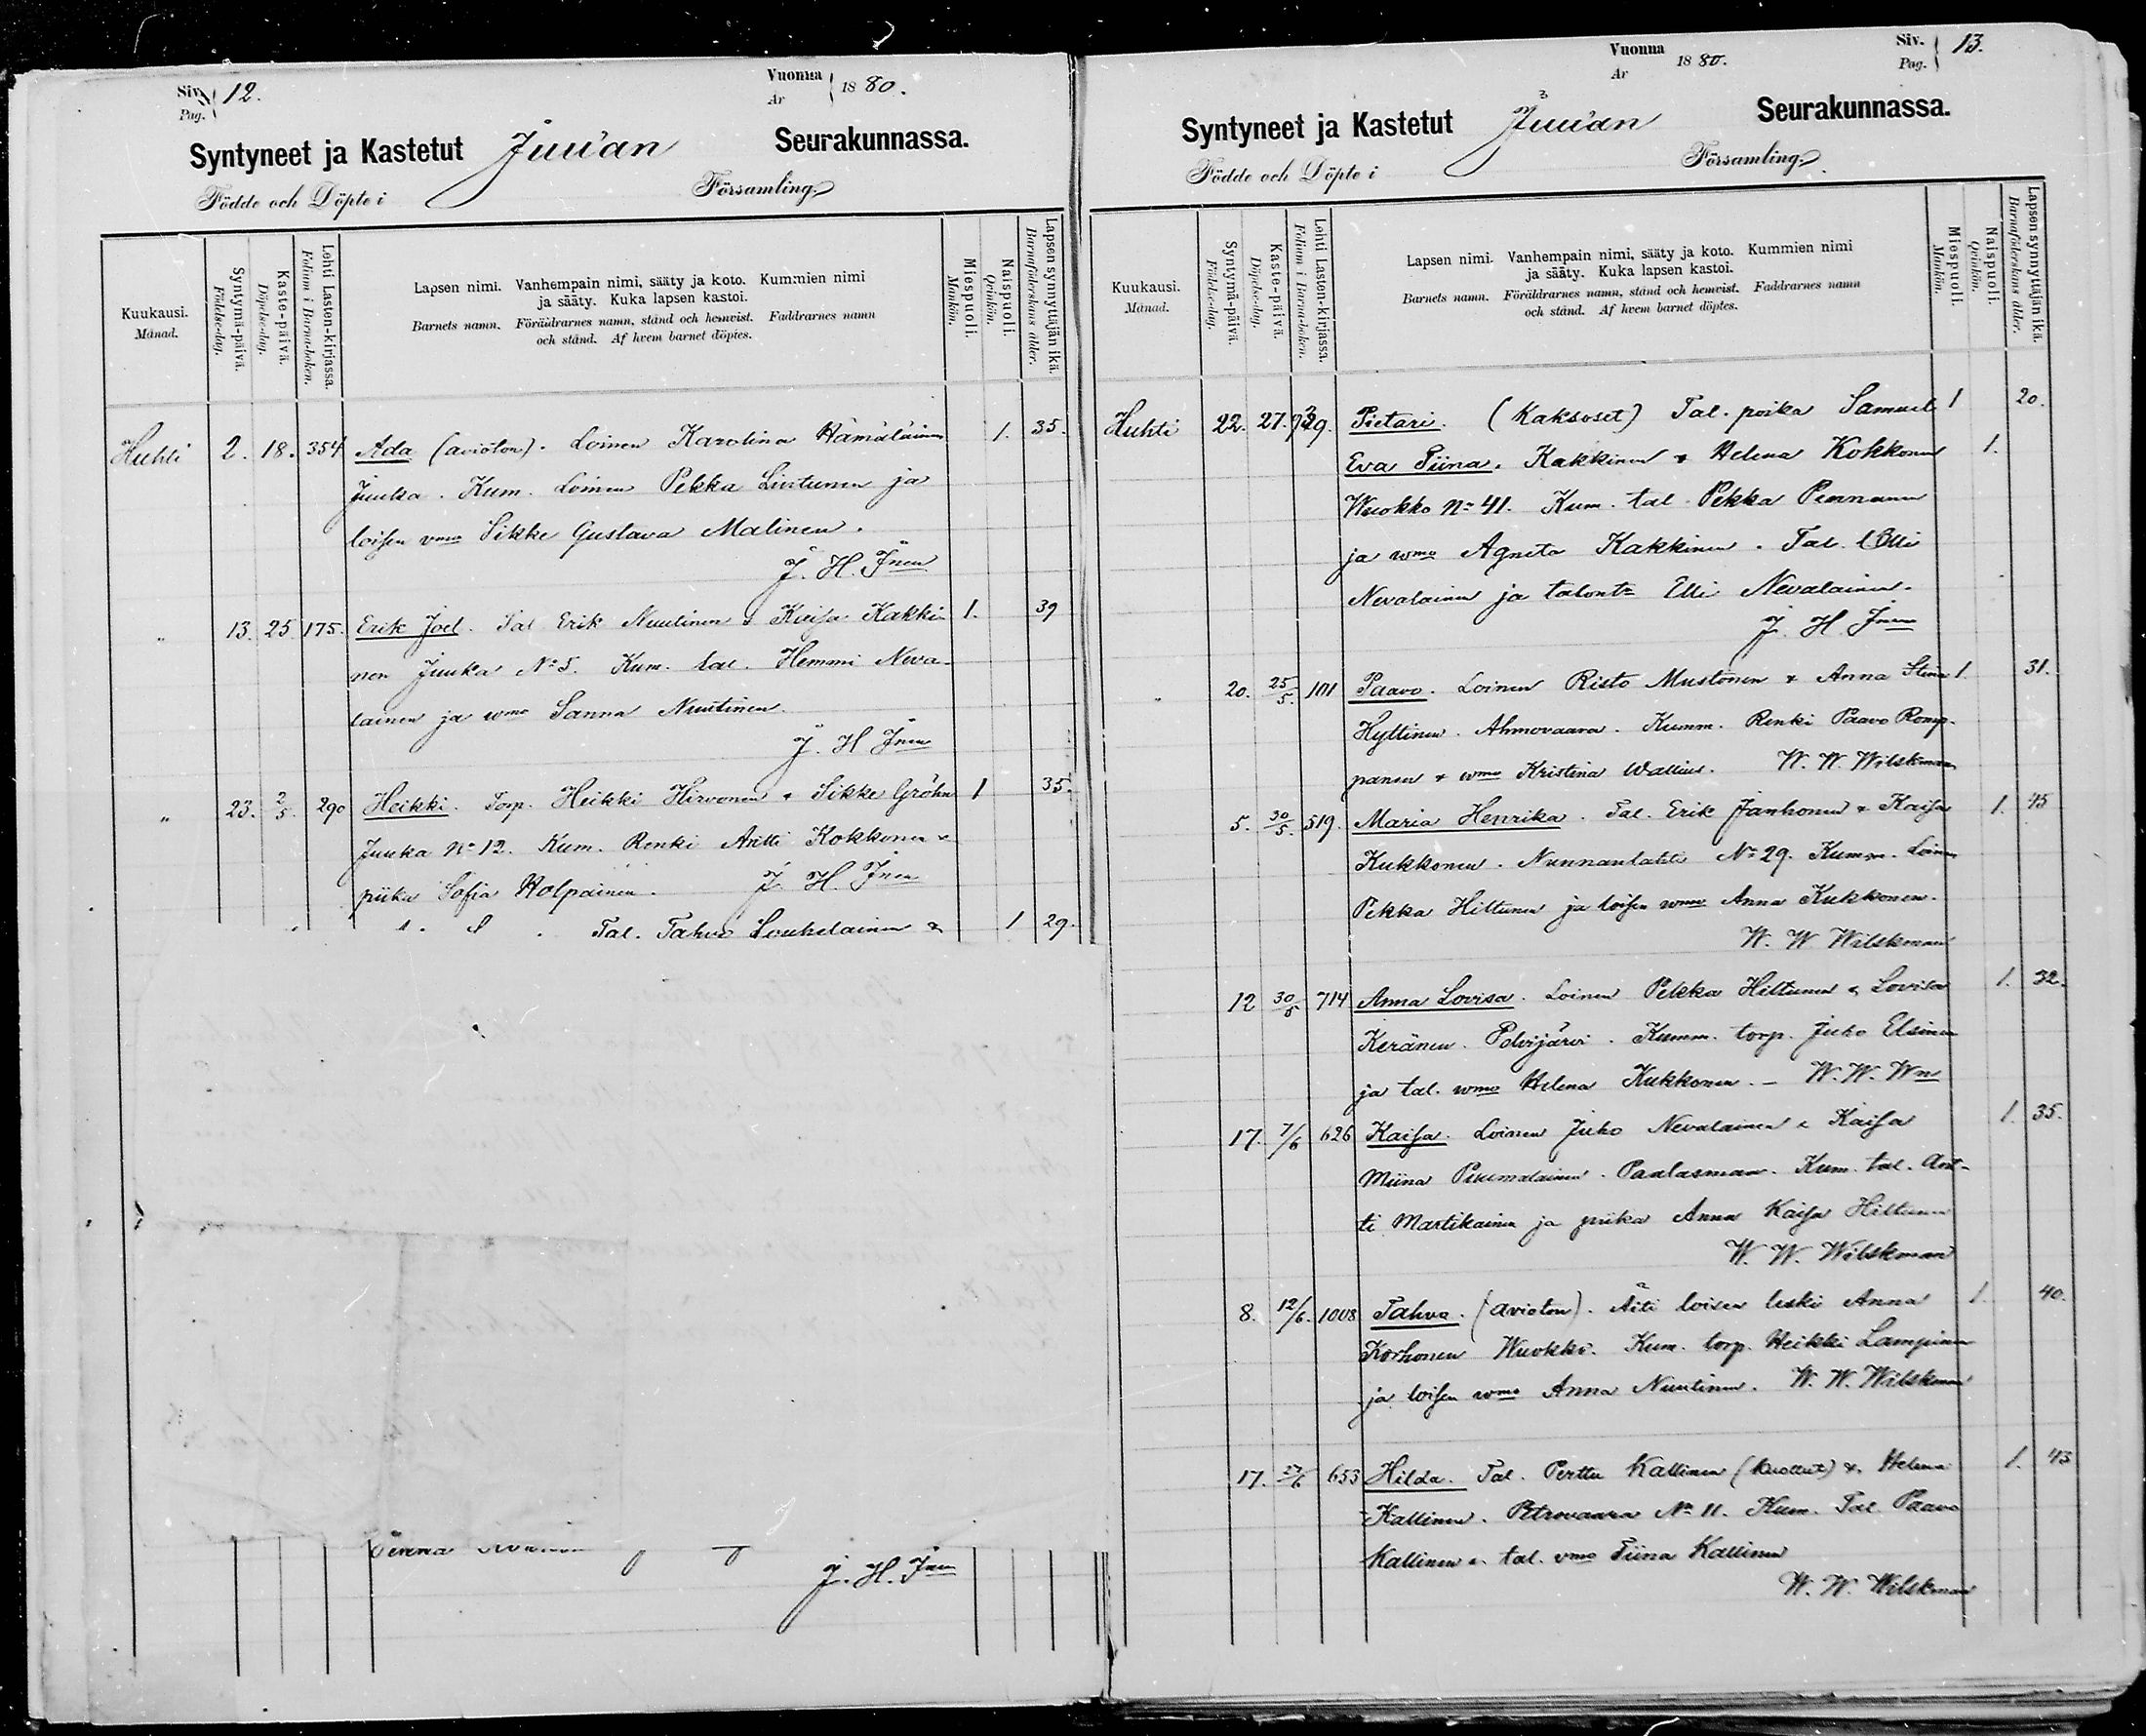 Siv. Pag. 12.
Vuonna År 1880.
Syntyneet ja Kastetut Juuan Seurakunnassa.
Födde och Döpte i Församling.
Kuukausi. Månad.
Syntymä-päivä. Födelse-dag.
Kaste-päivä. Döpelse-dag.
Lehti Lasten-kirjassa. Folium i Barna-boken.
Lapsen nimi. Vanhempain nimi, sääty ja koto. Kummien nimi
ja sääty. Kuka lapsen kastoi.
Barnets namn. Föräldrarnes namn, stånd och hemvist. Faddrarnes namn
och stånd. Af hvem barnet döptes.
Miespuoli. Mankön.
Naispuoli. Qvinkön.
Lapsen synnyttäjän ikä. Barnaföderskans ålder.
Huhti 2. 18. 354 Ada (avioton). Loinen Karolina Hämäläinen 1. 35.
Juuka. Kum. Loinen Pekka Lintunen ja
loisen vmo Sikke Gustava Malinen.
J. H. Jnen
" 13. 25 175. Erik Joel. Tal Erik Nuutinen & Kaisa Kakki- 1. 39
nen Juuka No 5. Kum. tal. Hemmi Neva-
lainen ja wmo Sanna Nuutinen.
J. H Jnen
" 23. 2/5. 290 Heikki. Torp. Heikki Hirvonen & Sikke Gröhn 1 35.
Juuka No 12. Kum. Renki Antti Kokkonen &
piika Sofia Holpainen. J. H. Jnen
Tal. Tahvo Souhelainen & 1 29.
J. H. Jnen
Siv. Pag. 13.
Vuonna År 1880.
Syntyneet ja Kastetut Juuan Seurakunnassa.
Födde och Döpte i Församling.
Kuukausi. Månad.
Syntymä-päivä. Födelse-dag.
Kaste-päivä. Döpelse-dag.
Lehti Lasten-kirjassa. Folium i Barna-boken.
Lapsen nimi. Vanhempain nimi, sääty ja koto. Kummien nimi
ja sääty. Kuka lapsen kastoi.
Barnets namn. Föräldrarnes namn, stånd och hemvist. Faddrarnes namn
och stånd. Af hvem barnet döptes.
Miespuoli. Mankön.
Naispuoli. Qvinkön.
Lapsen synnyttäjän ikä. Barnaföderskans ålder.
Huhti 22. 27. Pietari. (Kaksoset) Tal. poika Samuel 1 20.
Eva Tiina. Kakkinen & Helena Kokkonen 1.
Wuokko No 41. Kum. tal. Pekka Pennanen
ja wmo Agneta Kakkinen. Tal. Olli
Nevalainen ja talont. Elli Nevalainen.
J. H. Jnen
" 20. 25/5. 101 Paavo. Loinen Risto Mustonen & Anna Stina 1. 31.
Hyttinen. Ahmovaara. Kumm. Renki Paavo Romp-
panen & wmo Kristina Wallius. W. W. Wilskman
5. 30/5. 519. Maria Henrika. Tal. Erik Janhonen & Kaisa 1. 45
Kukkonen. Nunnanlahti No 29. Kumm. Loinen
Pekka Hiltunen ja loisen wmo Anna Kukkonen.
W. W Wilskman
12 30/5 714 Anna Lovisa. Loinen Pekka Hiltunen & Lovisa 1. 32.
Keränen. Polvijärvi. Kumm. torp. Juho Elsinen
ja tal. wmo Helena Kukkonen. – W. W. Wn
17. 7/6 626 Kaisa. Loinen Juho Nevalainen & Kaisa 1. 35.
Miina Puumalainen. Paalasmaa. Kum. tal. Ant-
ti Martikainen ja piika Anna Kaisa Hiltunen
W. W. Wilskman
8. 12/6. 1008 Tahvo. (avioton). Äiti loisen leski Anna 1. 40.
Korhonen Wuokko. Kum. torp. Heikki Lampinen
ja loisen wmo Anna Nuutinen. W. W. Wilskman
17. 27/6 653 Hilda. Tal. Perttu Kallinen (kuollut) & Helena 1. 43
Kallinen. Petrovaara No 11. Kum. Tal. Paavo
Kallinen & tal. vmo Tiina Kallinen
W. W. Wilskman